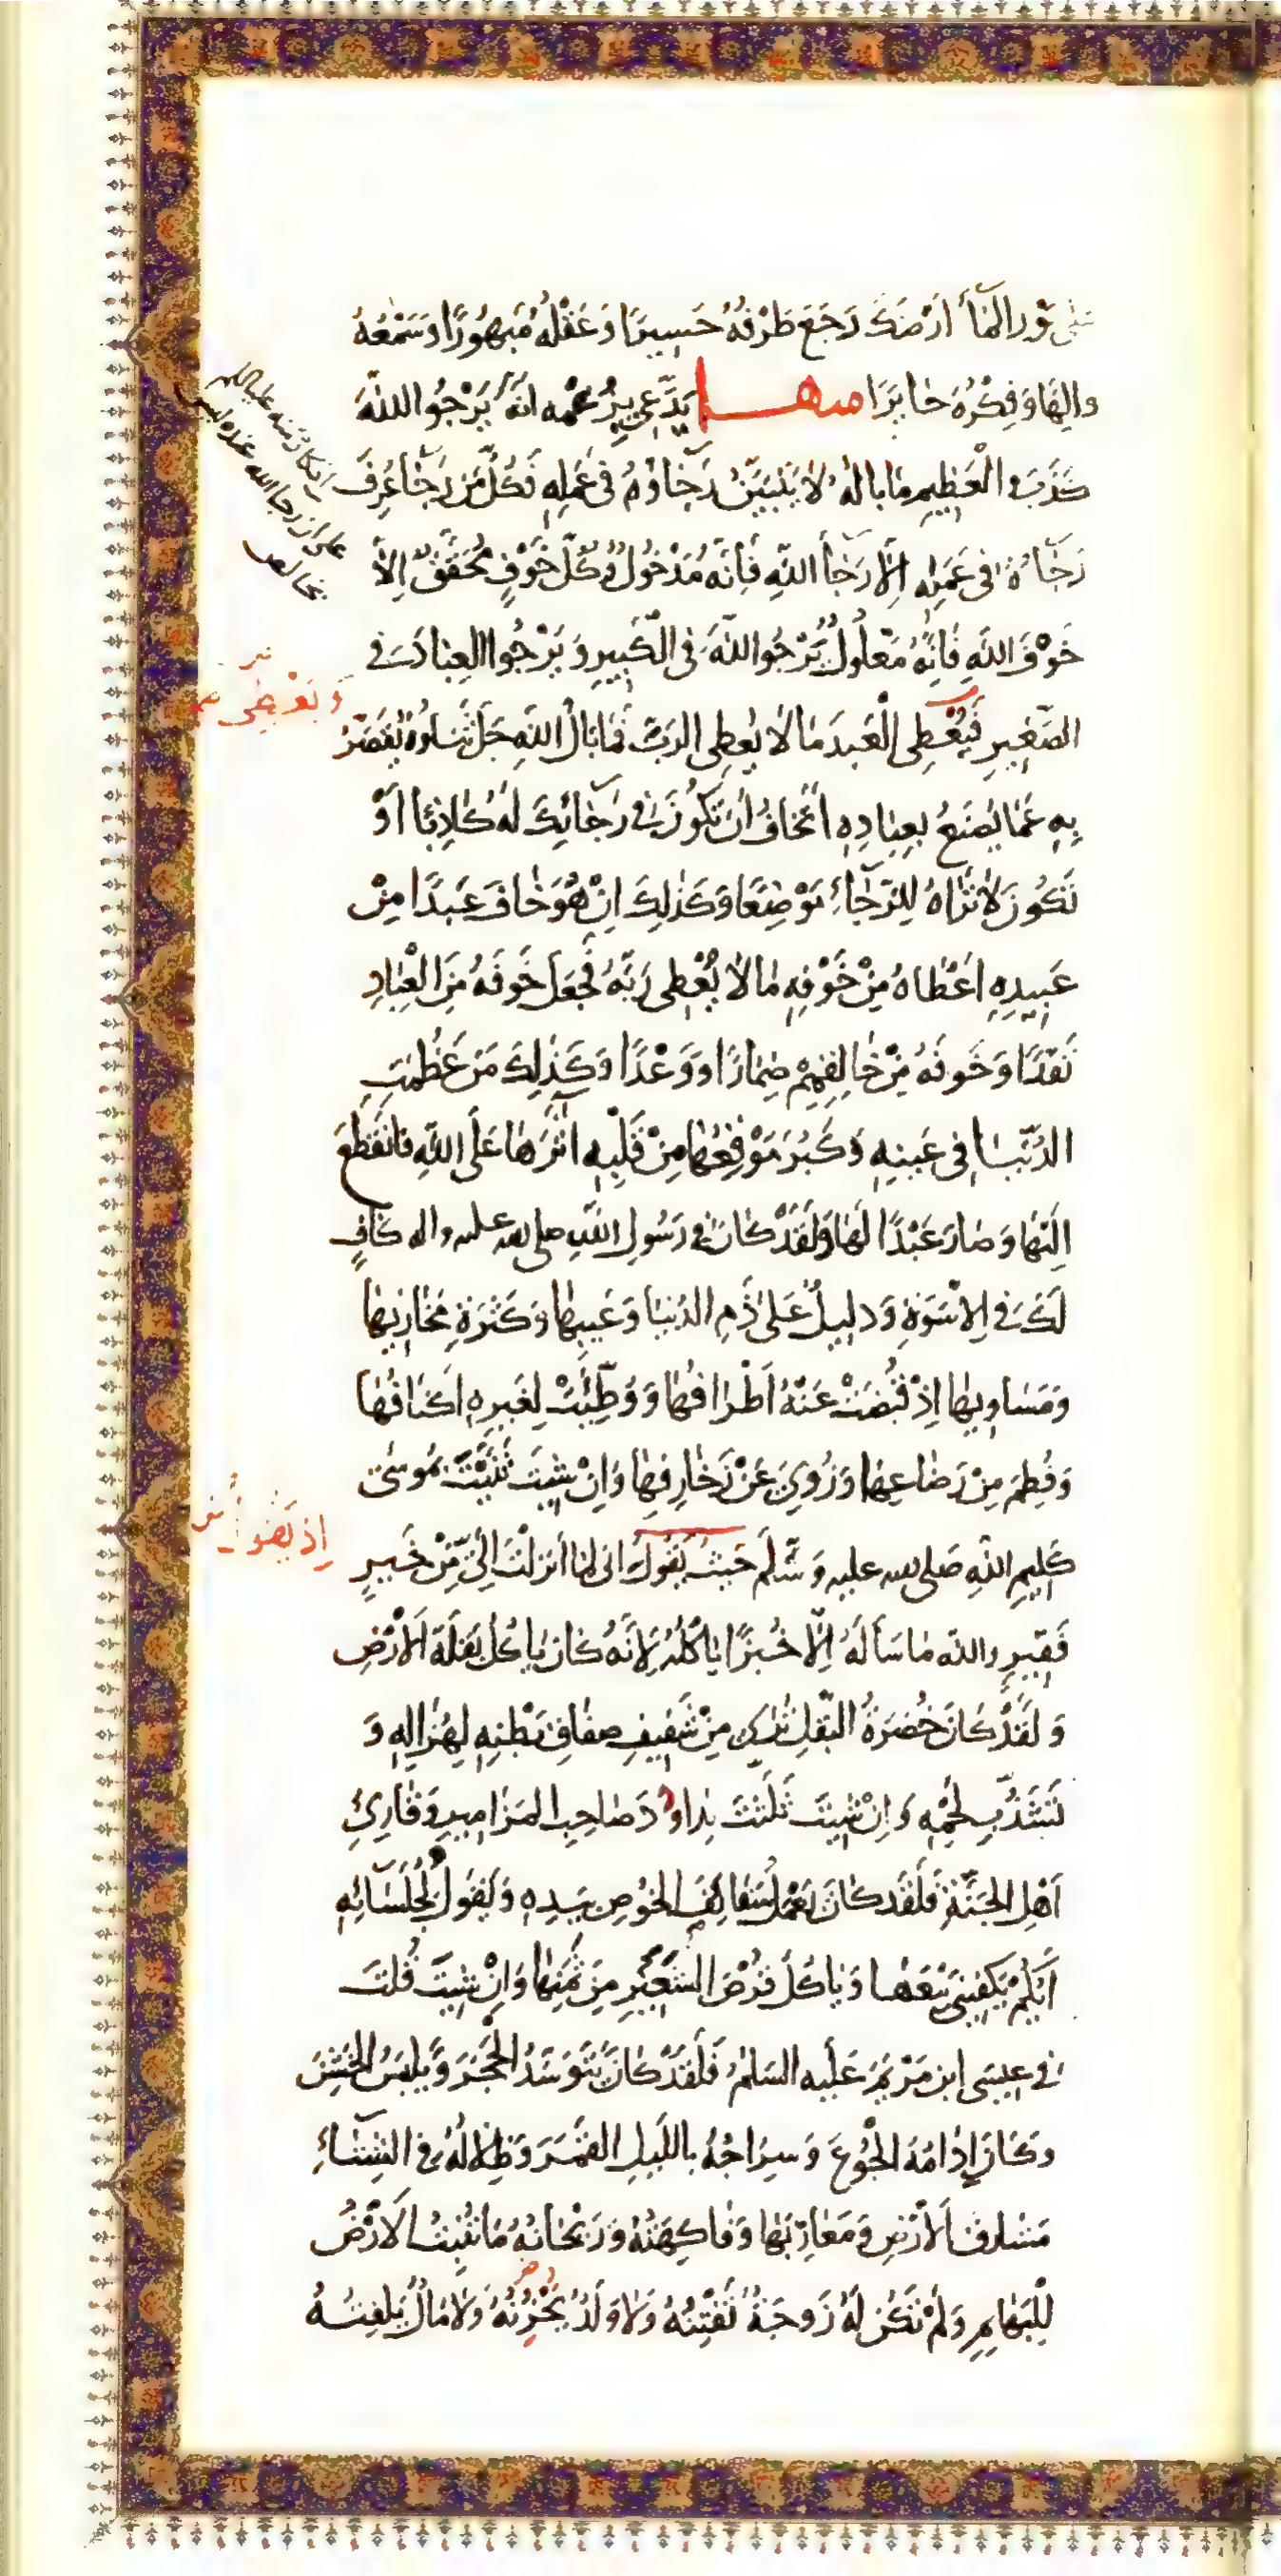 على مَوْرِ الْمَاءِ أَرْضَكَ رَجَعَ طَرْفُهُ حَسِيرًا وَعَقْلُهُ مَبْهُورًا وَسَمْعُهُ
وَالِهًا وَفِكْرُهُ حَائِرًا منها يَدَّعِي بِزُعْمِهِ أَنَّهُ يَرْجُوا اللَّهَ
كَذَبَ وَالْعَظِيمِ مَا بَالُهُ لَا يَتَبَيَّنُ رَجَاؤُهُ فِي عَمَلِهِ فَكُلُّ مَنْ رَجَا عُرِفَ
رَجَاؤُهُ فِي عَمَلِهِ إِلَّا رَجَاءَ اللَّهِ فَإِنَّهُ مَدْخُولٌ وَكُلُّ خَوْفٍ مُحَقَّقٌ إِلَّا
خَوْفَ اللَّهِ فَإِنَّهُ مَعْلُولٌ يَرْجُوا اللَّهَ فِي الْكَبِيرِ وَيَرْجُوا الْعِبَادَ فِي
الصَّغِيرِ فَيُعْطِي الْعَبْدَ مَا لَا يُعْطِي الرَّبَّ فَمَا بَالُ اللَّهِ جَلَّ ثَنَاؤُهُ يُقَصَّرُ
بِهِ عَمَّا يُصْنَعُ بِعِبَادِهِ أَتَخَافُ أَنْ تَكُونَ فِي رَجَائِكَ لَهُ كَاذِبًا أَوْ
تَكُونَ لَا تَرَاهُ لِلرَّجَاءِ مَوْضِعًا وَكَذَلِكَ إِنْ هُوَ خَافَ عَبْدًا مِنْ
عَبِيدِهِ أَعْطَاهُ مِنْ خَوْفِهِ مَا لَا يُعْطِي رَبَّهُ فَجَعَلَ خَوْفَهُ مِنَ الْعِبَادِ
نَقْدًا وَخَوْفَهُ مِنْ خَالِقِهِمْ ضِمَارًا وَوَعْدًا وَكَذَلِكَ مَنْ عَظُمَتِ
الدُّنْيَا فِي عَيْنِهِ وَكَبُرَ مَوْقِعُهَا مِنْ قَلْبِهِ آثَرَهَا عَلَى اللَّهِ فَانْقَطَعَ
إِلَيْهَا وَصَارَ عَبْدًا لَهَا وَلَقَدْ كَانَ فِي رَسُولِ اللَّهِ صلى الله عليه واله كَافٍ
لَكَ فِي الْأُسْوَةِ وَدَلِيلٌ عَلَى ذَمِّ الدُّنْيَا وَعَيْبِهَا وَكَثْرَةِ مَخَازِيهَا
وَمَسَاوِيهَا إِذْ قُبِضَتْ عَنْهُ أَطْرَافُهَا وَوُطِّئَتْ لِغَيْرِهِ أَكْنَافُهَا
وَفُطِمَ مِنْ رَضَاعِهَا وَزُوِيَ عَنْ زَخَارِفِهَا وَإِنْ شِيتَ ثَنَّيْتُ بِمُوسَى
كَلِيمِ اللَّهِ صَلى الله عليه وَسَلَّمَ حَيْثُ يَقُولُ إني لما أَنْزَلْتَ إِلَيَّ مِنْ خَيْرٍ
فَقِيرٌ والله مَا سَأَلَهُ إِلَّا خُبْزًا يَأْكُلُهُ لِأَنَّهُ كَانَ يَأْكُلُ بَقْلَةَ الْأَرْضِ
وَلَقَدْ كَانَ خُضْرَةُ الْبَقْلِ تُرَى مِنْ شَفِيفِ صِفَاقِ بَطْنِهِ لِهُزَالِهِ وَ
تَشَذُّبِ لَحْمِهِ وَإِنْ شِيتَ ثَلَّثْتُ بِدَاوُدَ صَاحِبِ الْمَزَامِيرِ وَقَارِئِ
أَهْلِ الْجَنَّةِ فَلَقَدْ كَانَ يَعْمَلُ سَفَائِفَ الْخُوصِ بِيَدِهِ وَيَقُولُ لِجُلَسَائِهِ
أَيُّكُمْ يَكْفِينِي بَيْعَهَا وَيَأْكُلُ قُرْصَ الشَّعِيرِ مِنْ ثَمَنِهَا وَإِنْ شِيتَ قُلْتُ
فِي عِيسَى ابْنِ مَرْيَمَ عَلَيْهِ السَّلَمُ فَلَقَدْ كَانَ يَتَوَسَّدُ الْحَجَرَ وَيَلْبَسُ الْخَشِنَ
وَكَانَ إِدَامُهُ الْجُوعَ وَسِرَاجُهُ بِاللَّيْلِ الْقَمَرَ وَظِلَالُهُ فِي الشِّتَاءِ
مَشَارِقَ الْأَرْضِ وَمَغَارِبَهَا وَفَاكِهَتُهُ وَرَيْحَانُهُ مَا تُنْبِتُ الْأَرْضُ
لِلْبَهَايِمِ وَلَمْ تَكُنْ لَهُ زَوْجَةٌ تَفْتِنُهُ وَلَا وَلَدٌ يَحْزُنُهُ وَلَا مَالٌ يَلْفِتُهُ
انكار منه عليه السلم
على ان رجا الله عنده ليس
بخالص
وَيُعْطِي
إذ يَقُولُ